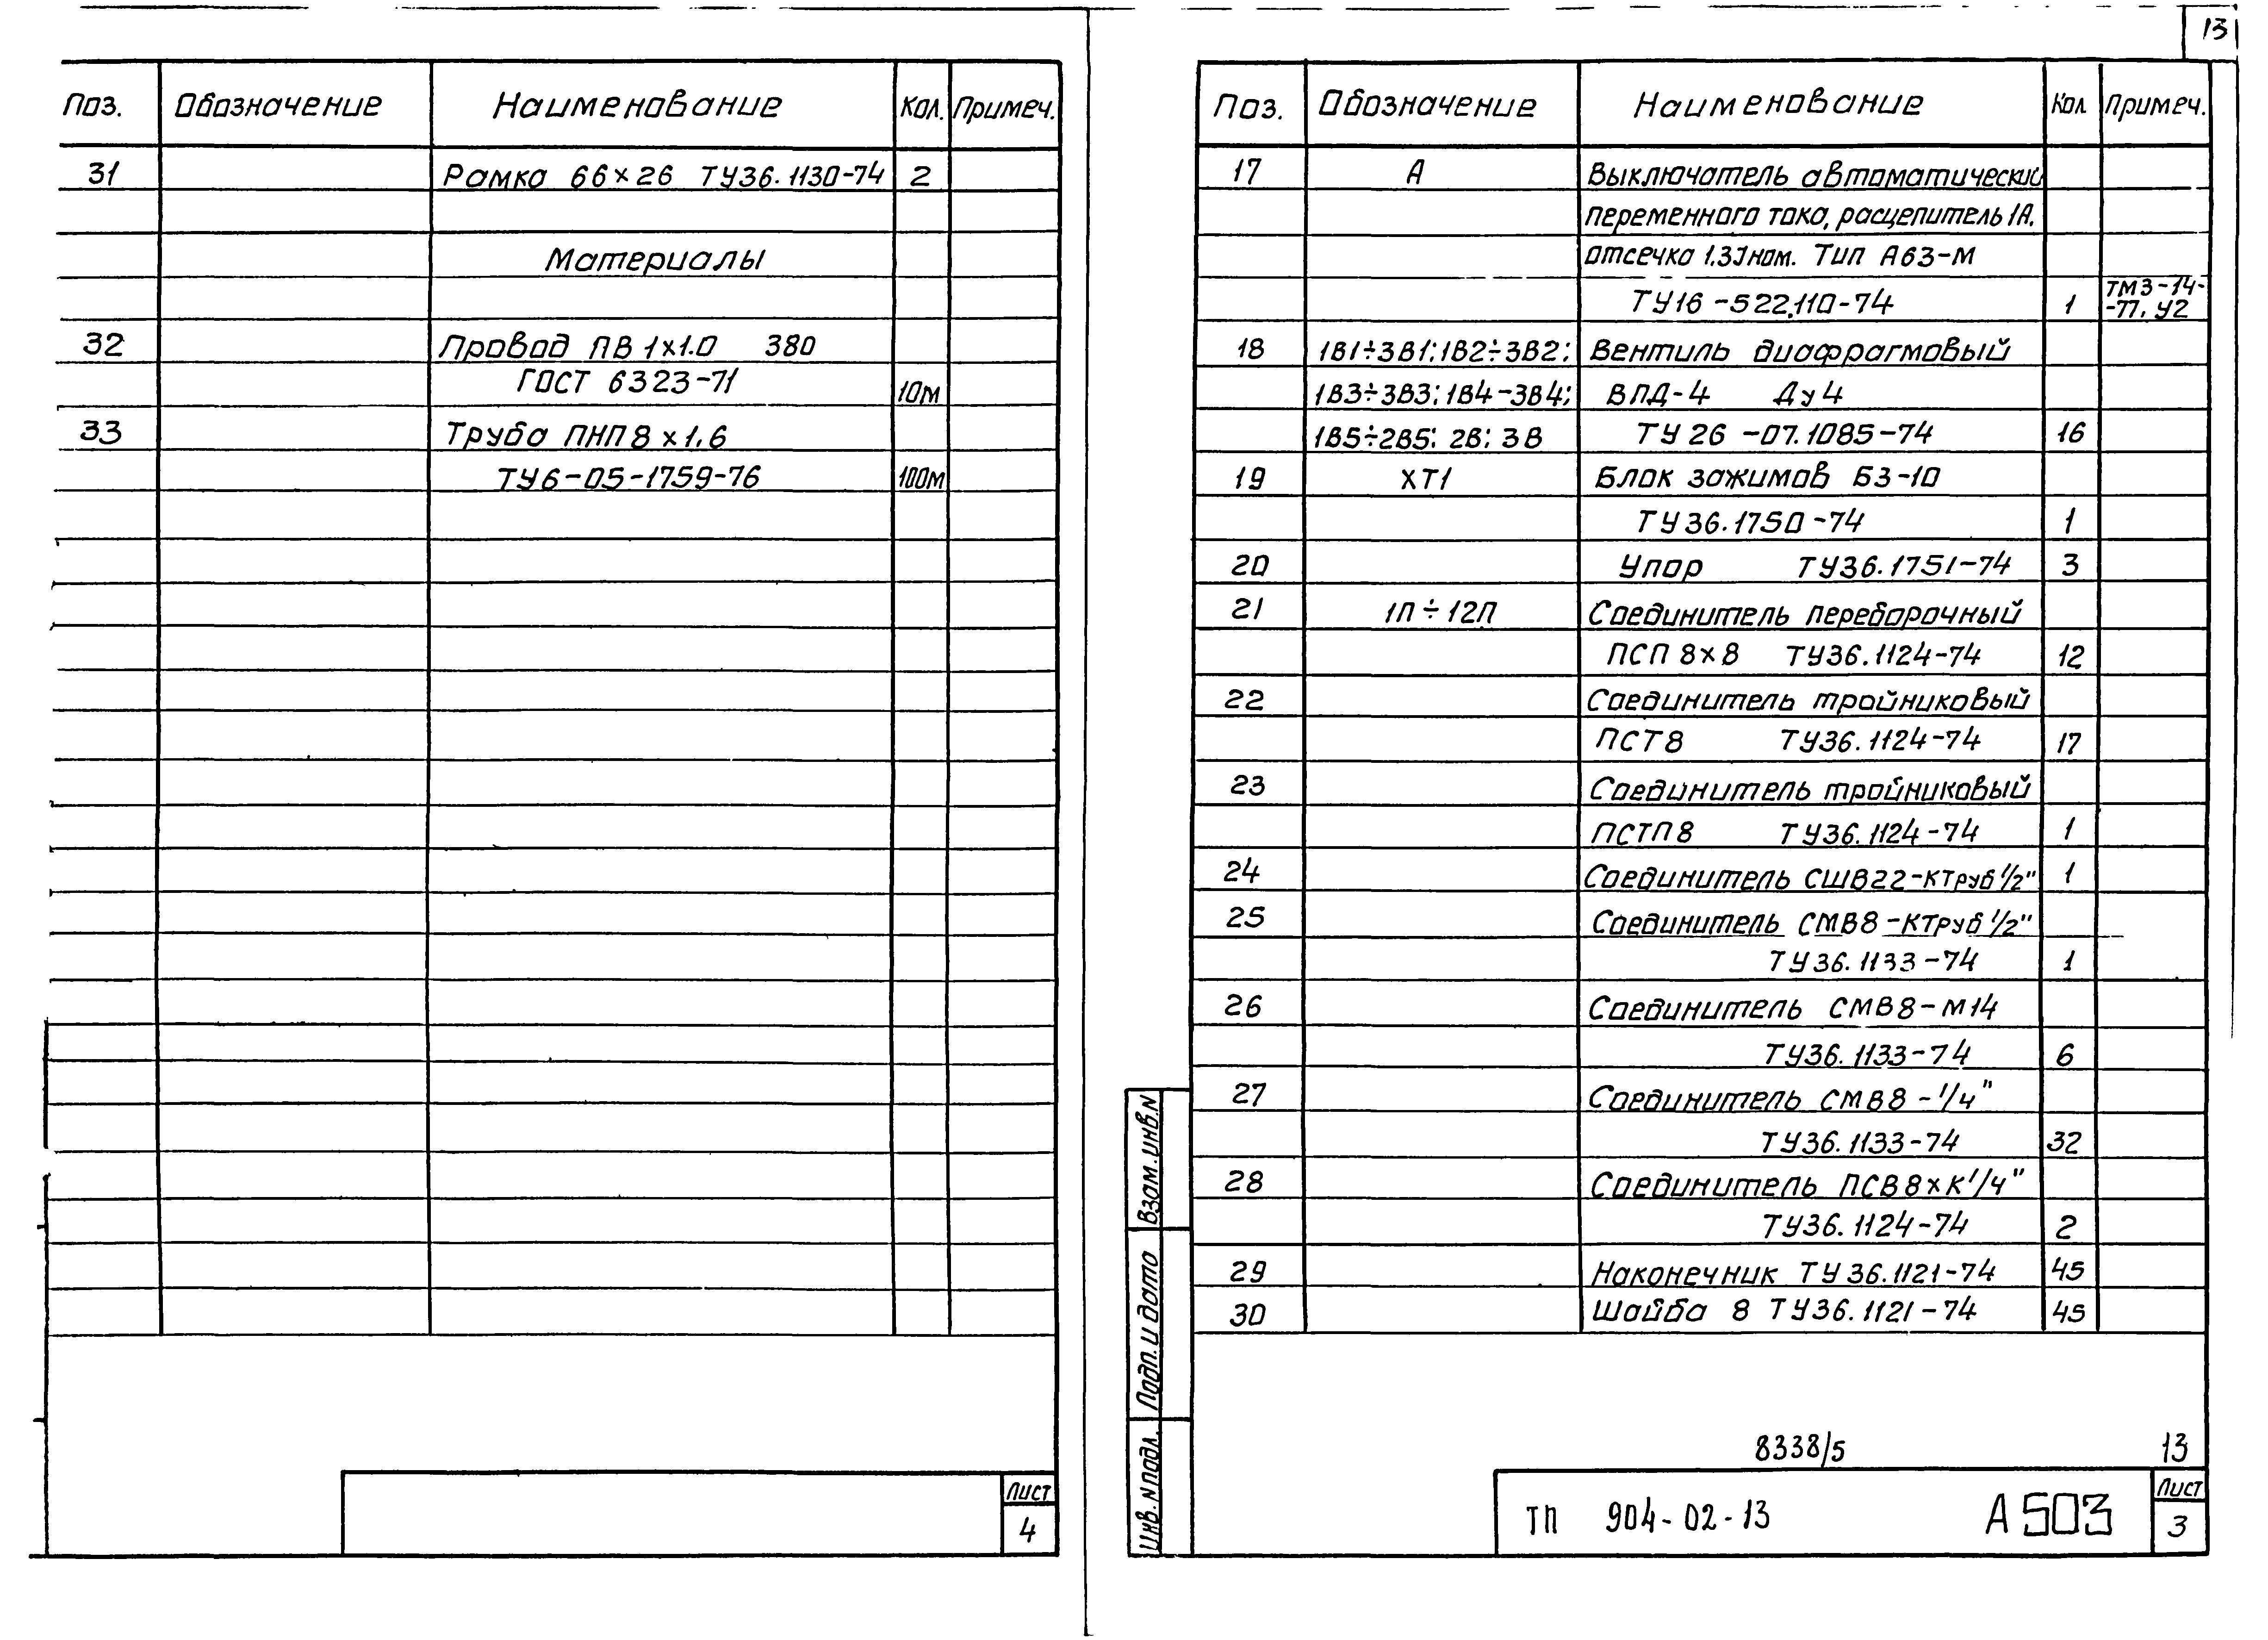 Поз. Обозначение Наименование Кол. Примеч.
31 Рамка 66×26 ТУ36.1130-74 2
Материалы
32 Провод ПВ 1×1.0 380
ГОСТ 6323-71 10м
33 Труба ПНП 8×1,6
ТУ6-05-1759-76 100м
Лист
4
13
Поз. Обозначение Наименование Кол Примеч.
17 А Выключатель автоматический
переменного тока, расцепитель 1А.
отсечка 1.3Jном. Тип А63-М
ТУ16-522.110-74 1 ТМ3-14-
-77. У2
18 1В1÷3В1; 1В2÷3В2; Вентиль диафрагмовый
1В3÷3В3; 1В4-3В4; ВПД-4 Ду4
1В5÷2В5; 2В; 3В ТУ 26-07.1085-74 16
19 ХТ1 Блок зажимов БЗ-10
ТУ36.1750-74 1
20 Упор ТУ36.1751-74 3
21 1П÷12П Соединитель переборочный
ПСП 8×8 ТУ36.1124-74 12
22 Соединитель тройниковый
ПСТ8 ТУ36.1124-74 17
23 Соединитель тройниковый
ПСТП8 ТУ36.1124-74 1
24 Соединитель СШВ22-КТруб 1/2" 1
25 Соединитель СМВ8-КТруб 1/2"
ТУ36.1133-74 1
26 Соединитель СМВ8-М14
ТУ36.1133-74 6
27 Соединитель СМВ8-1/4"
ТУ36.1133-74 32
28 Соединитель ПСВ8×К1/4"
ТУ36.1124-74 2
29 Наконечник ТУ36.1121-74 45
30 Шайба 8 ТУ36.1121-74 45
Взам.инв.N
Подп. и дата
Инв.N подл.
8338/5 13
ТП 904-02-13 А503
Лист
3